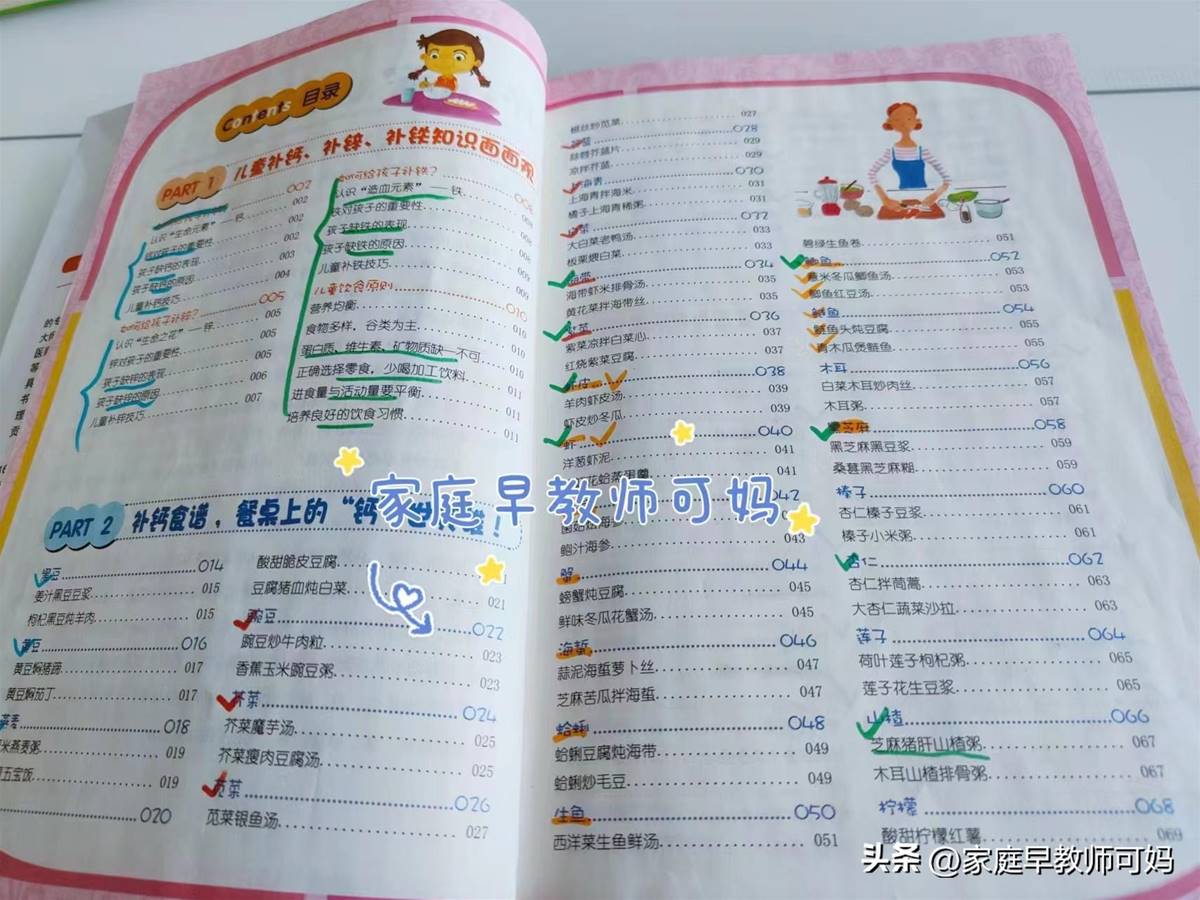 Contents 目录
PART 1 儿童补钙、补锌、补铁知识面面观
002
认识“生命元素” 钙 002
钙对孩子的重要性 002
孩子缺钙的表现 003
孩子缺钙的原因 003
儿童补钙技巧 004
如何给孩子补锌? 005
认识“生命之花”一锌 005
锌对孩子的重要性 005
孩子缺锌的表现 005
孩子缺锌的原因 006
儿童补锌技巧 007
如何给孩子补铁?
认识“造血元素”一铁
铁对孩子的重要性
孩子缺铁的表现
孩子缺铁的原因
儿童补铁技巧
儿童饮食原则 010
营养均衡 010
食物多样,谷类为主 010
蛋白质、维生素、矿物质缺一不可 010
正确选择零食,少喝加工饮料 011
进食量与活动量要平衡 011
培养良好的饮食习惯 011
PART 2 补钙食谱,餐桌上的“钙
黑豆 014
姜汁黑豆豆浆 015
枸杞黑豆炖羊肉 015
黄豆 016
黄豆焖猪蹄 017
黄豆焖茄丁 017
燕麦 018
米燕麦粥 019
五宝饭 019
020
酸甜脆皮豆腐
豆腐猪血炖白菜 021
豌豆 022
豌豆炒牛肉粒 023
香蕉玉米豌豆粥 023
芥菜 024
芥菜魔芋汤 025
芥菜瘦肉豆腐汤 025
苋菜 026
苋菜银鱼汤 027
椒丝炒苋菜 027
028
凉拌芥蓝 029
030
上海青拌海米 031
橘子上海青稀粥 031
032
大白菜老鸭汤 033
板栗煨白菜 033
海带 034
海带虾米排骨汤 035
黄花菜拌海带丝 035
紫菜 036
紫菜凉拌白菜心 037
红烧紫菜豆腐 037
虾皮 038
羊肉虾皮汤 039
虾皮炒冬瓜 039
虾 040
洋葱虾泥 041
花蛤蒸蛋羹 041
042
鲍汁海参 043
蟹 044
螃蟹炖豆腐 045
鲜味冬瓜花蟹汤 045
海蜇 046
蒜泥海蜇萝卜丝 047
芝麻苦瓜拌海蜇 047
蛤蜊 048
蛤蜊豆腐炖海带 049
蛤蜊炒毛豆 049
生鱼 050
西洋菜生鱼鲜汤 051
碧绿生鱼卷 051
鲫鱼 052
薏米冬瓜鲫鱼汤 053
鲫鱼红豆汤 053
鲢鱼 054
鲢鱼头炖豆腐 055
青木瓜煲鲢鱼 055
木耳 056
白菜木耳炒肉丝 057
木耳粥 057
黑芝麻 058
黑芝麻黑豆浆 059
桑葚黑芝麻糊 059
榛子 060
杏仁榛子豆浆 061
榛子小米粥 061
杏仁 062
杏仁拌茼蒿 063
大杏仁蔬菜沙拉 063
莲子 064
荷叶莲子枸杞粥 065
莲子花生豆浆 065
山楂 066
芝麻猪肝山楂粥 067
木耳山楂排骨粥 067
柠檬 068
酸甜柠檬红薯 069
家庭早教师可妈
头条 @家庭早教师可妈